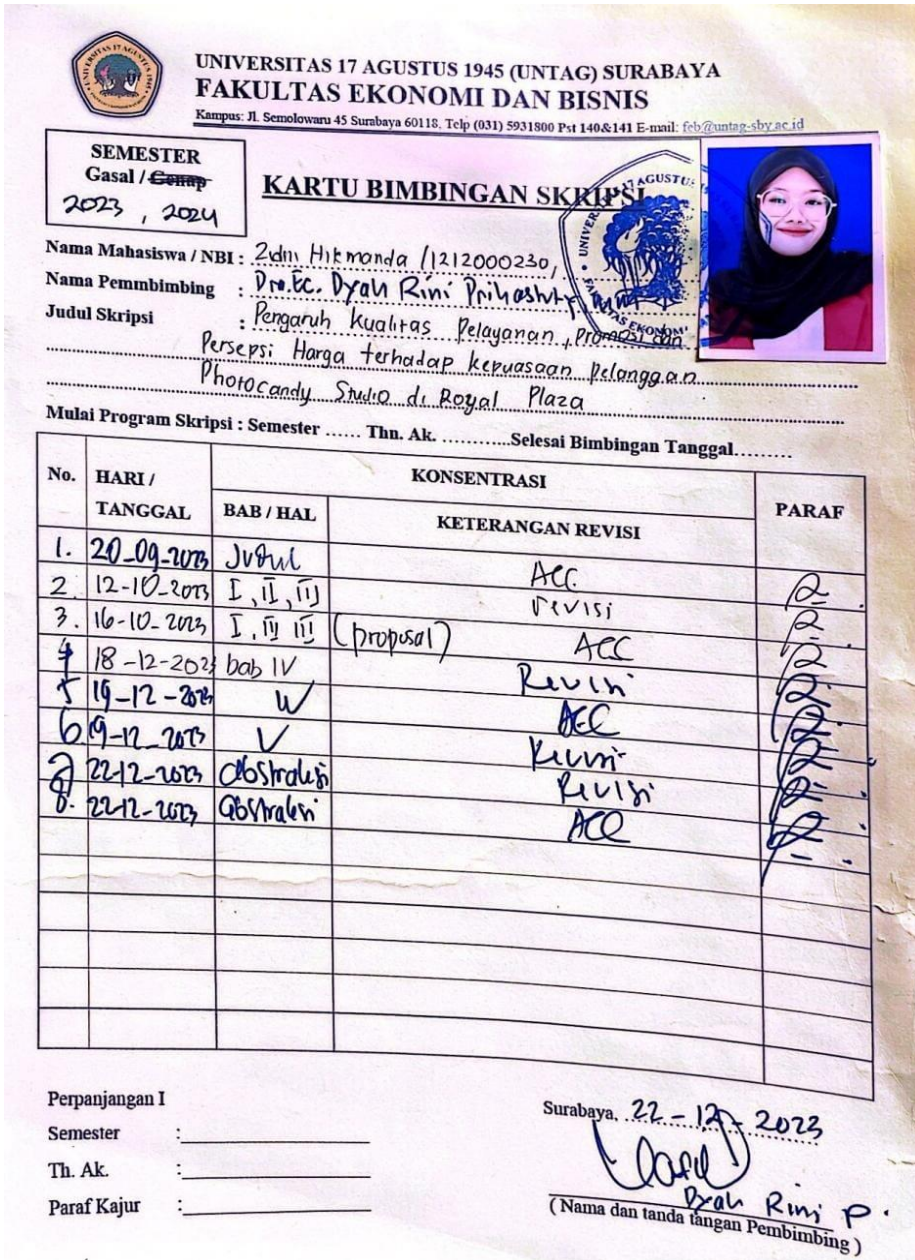 UNIVERSITAS 17 AGUSTUS 1945 (UNTAG) SURABAYA
FAKULTAS EKONOMI DAN BISNIS
Kampus: Jl. Semolowaru 45 Surabaya 60118, Telp (031) 5931800 Pst 140&141 E-mail: feb@untag-sby.ac.id
SEMESTER
Gasal / Genap
2023 , 2024
KARTU BIMBINGAN SKRIPSI
Nama Mahasiswa / NBI : Zidni Hikmanda /1212000230,
Nama Pemmbimbing : Dyah Rini Prihastuty
Judul Skripsi : Pengaruh kualitas Pelayanan, Promosi dan
Persepsi Harga terhadap kepuasaan pelanggan
Photocandy Studio di Royal Plaza
Mulai Program Skripsi : Semester ...... Thn. Ak. ...........Selesai Bimbingan Tanggal.........
No. HARI / TANGGAL KONSENTRASI PARAF
BAB / HAL KETERANGAN REVISI
1. 20-09-2023 Judul ACC
2. 12-10-2023 I, II, III revisi
3. 16-10-2023 I, II, III (proposal) ACC
4 18-12-2023 bab IV Revisi
5 19-12-2023 IV ACC
6. 19-12-2023 V Revisi
7 22-12-2023 abstraksi Revisi
8. 22-12-2023 abstraksi ACC
Perpanjangan I
Semester :
Th. Ak. :
Paraf Kajur :
Surabaya, 22-12-2023
Dyah Rini P.
( Nama dan tanda tangan Pembimbing )